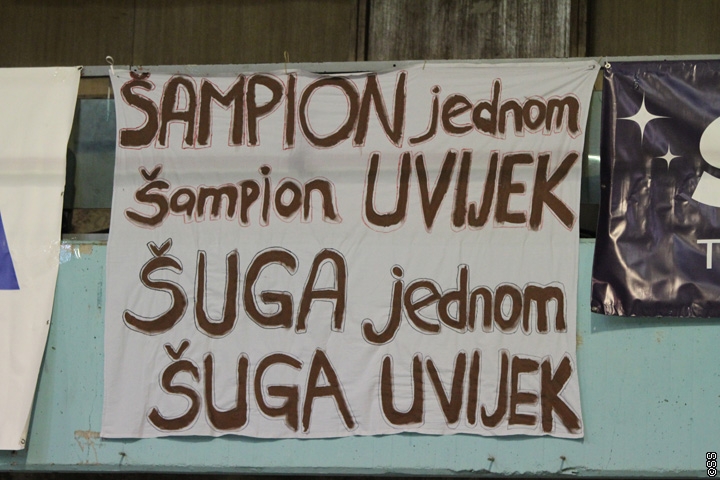 ŠAMPION jednom
šampion UVIJEK
ŠUGA jednom
ŠUGA UVIJEK
GSS